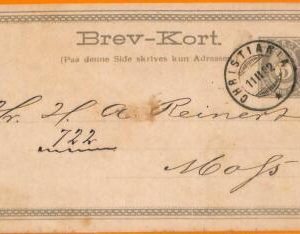 Brev-Kort.
(Paa denne Side skrives kun Adressen
CHRISTIANIA
Hr. H. A. Reinert
722
Moss